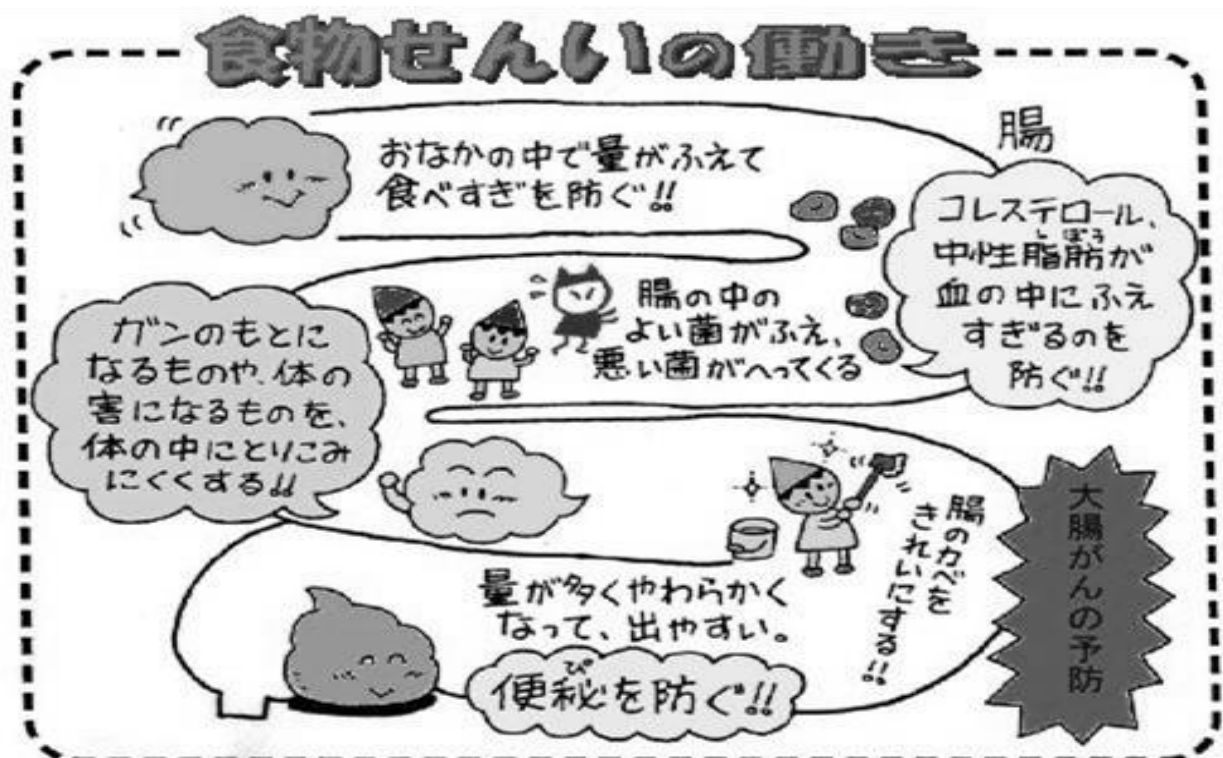 食物せんいの働き
腸
おなかの中で量がふえて
食べすぎを防ぐ!!
コレステロール、
中性脂肪が
しぼう
血の中にふえ
すぎるのを
防ぐ!!
腸の中の
よい菌がふえ、
悪い菌がへってくる
ガンのもとに
なるものや、体の
害になるものを、
体の中にとりこみ
にくくする!!
腸のかべを
きれいにする!!
大腸がんの予防
量が多くやわらかく
なって、出やすい。
便秘を防ぐ!!
ぴ